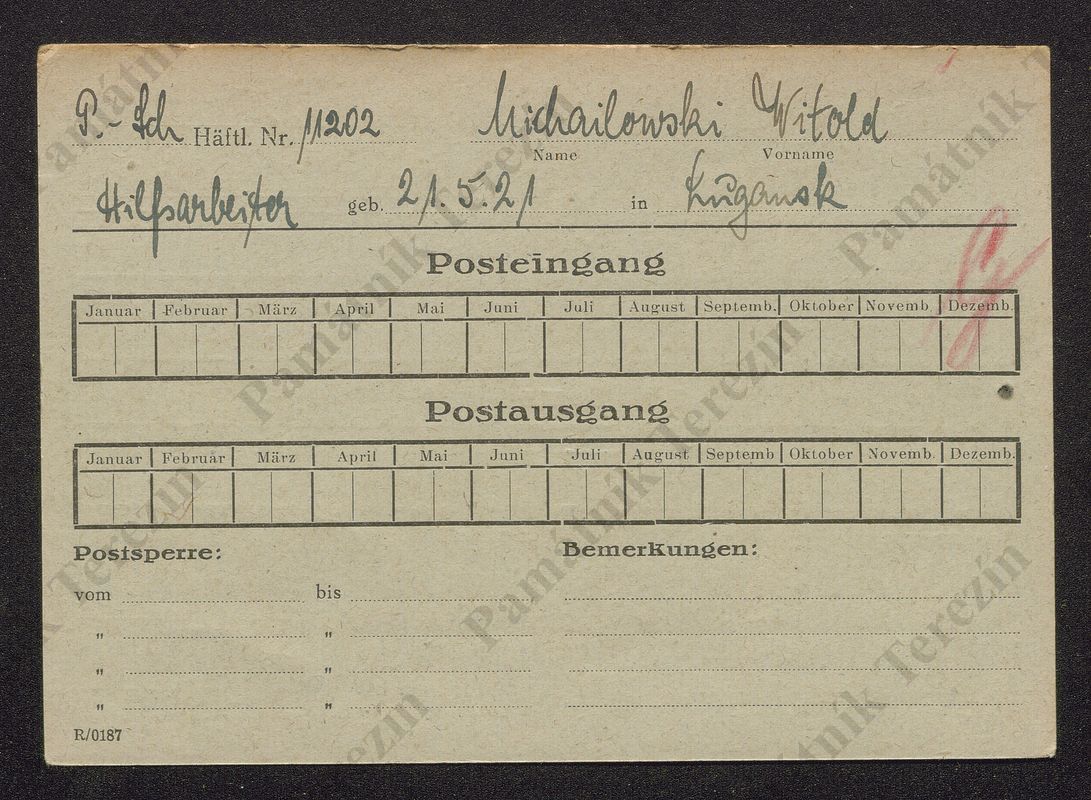 P.-Sch Häftl. Nr. 11202 Michailowski Witold
Name Vorname
Hilfsarbeiter geb. 21.5.21 in Lugansk
Posteingang
Januar Februar März April Mai Juni Juli August Septemb. Oktober Novemb. Dezemb.
Postausgang
Januar Februar März April Mai Juni Juli August Septemb Oktober Novemb. Dezemb.
Postsperre: Bemerkungen:
vom bis
" "
" "
" "
R/0187
Památník Terezín